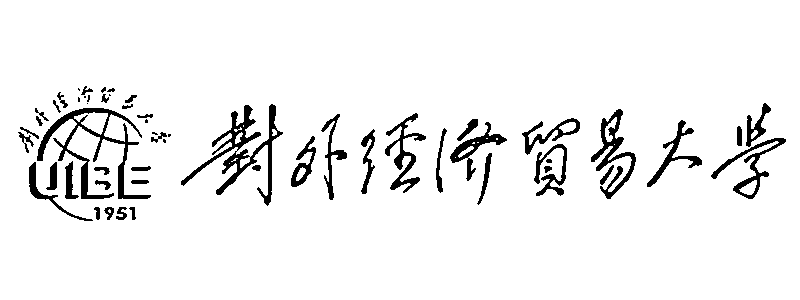 對外經济貿易大學
UIBE
1951
對外經济貿易大學